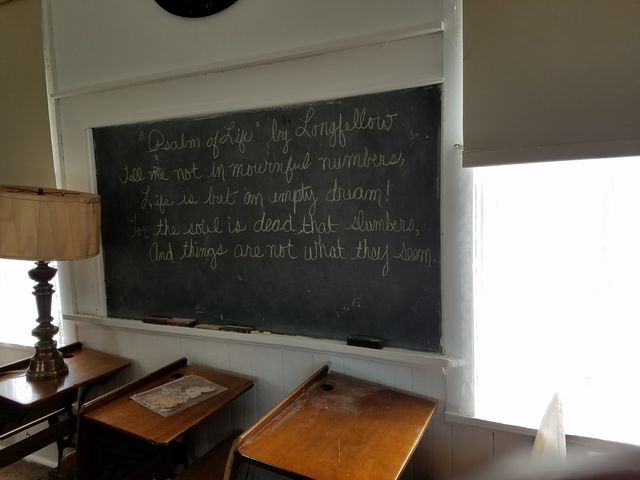 "Psalm of Life" by Longfellow
Tell me not in mournful numbers,
Life is but an empty dream!
For the soul is dead that slumbers,
And things are not what they seem.